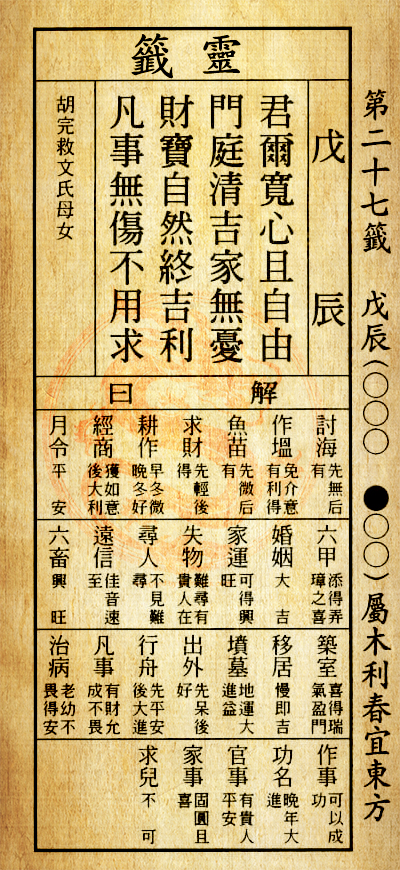 第二十七籤 戊辰(○○○ ●○○)屬木利春宜東方
靈籤
戊辰
君爾寬心且自由
門庭清吉家無憂
財寶自然終吉利
凡事無傷不用求
胡完救文氏母女
解曰
討海 先無后有
作塭 免介意有利得
魚苗 先微后有
求財 先輕後得
耕作 早冬微晚冬好
經商 獲如意後大利
月令 平安
六甲 添得弄璋之喜
婚姻 大吉
家運 可得興旺
失物 難尋有貴人在
尋人 不見難尋
遠信 佳音速至
六畜 興旺
築室 喜得瑞氣盈門
移居 慢即吉
墳墓 地運大進益
出外 先呆後好
行舟 先平安後大進
凡事 有財允成不畏
治病 老幼不畏得安
作事 可以成功
功名 晚年大進
官事 有貴人平安
家事 固圓且喜
求兒 不可